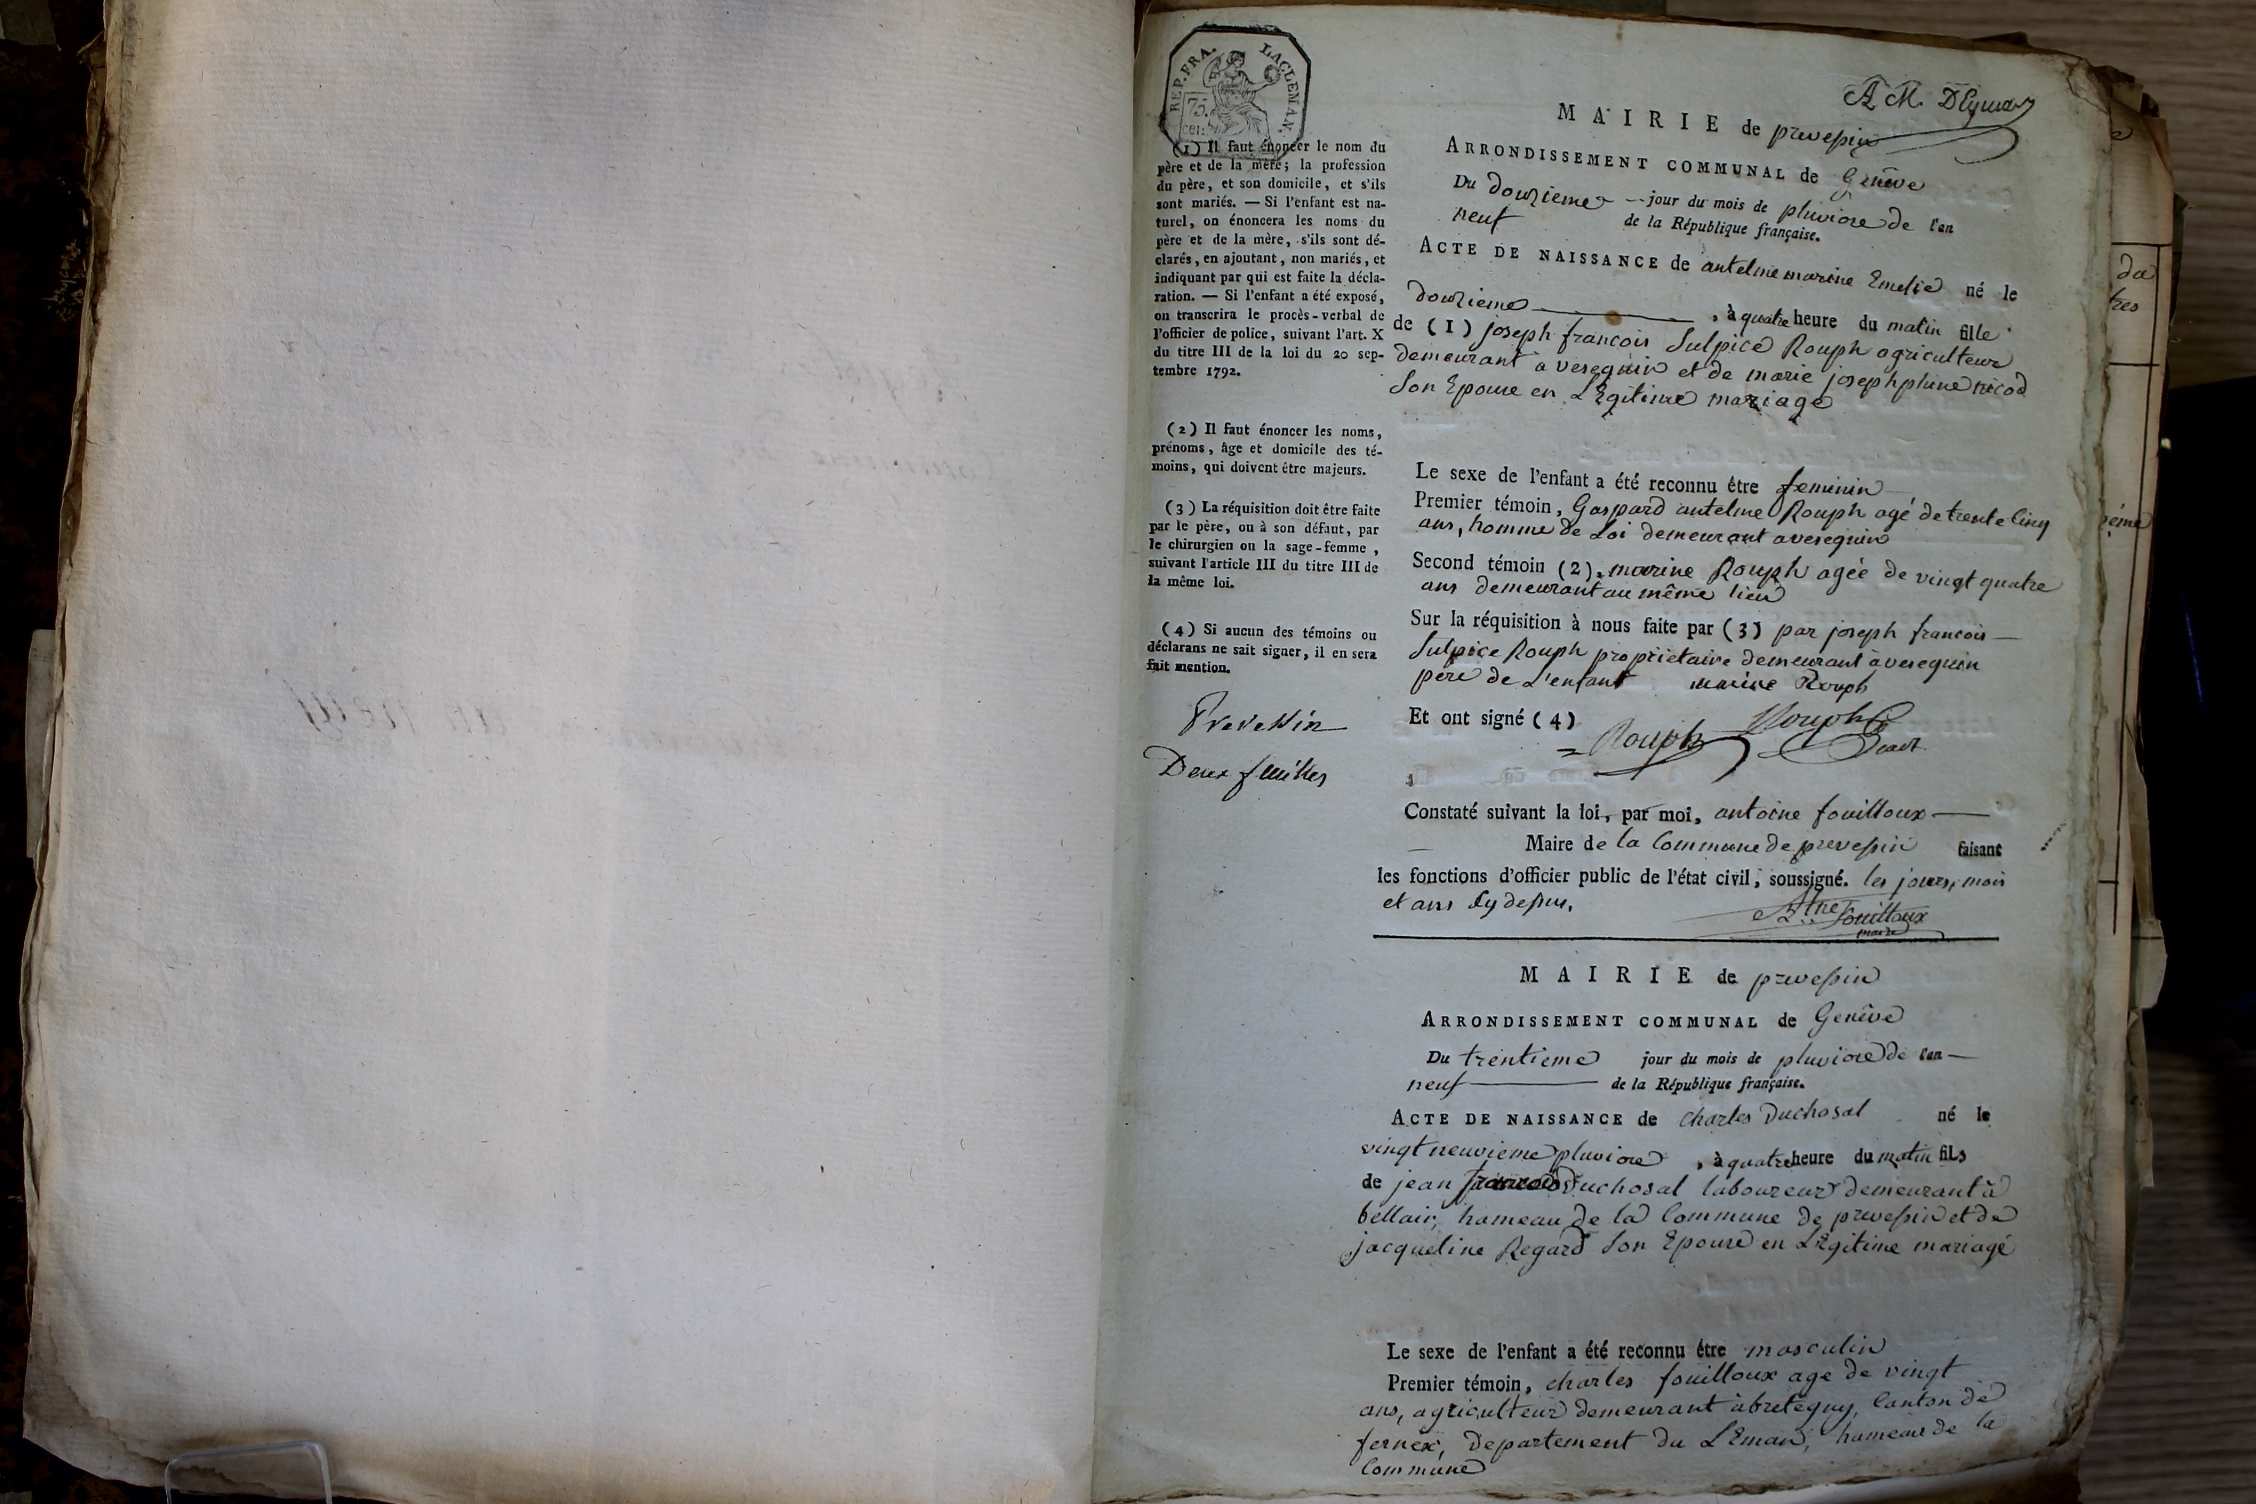 REP. FRA.
LAC LEMAN.
75.
CEN.
(1) Il faut énoncer le nom du
père et de la mère; la profession
du père, et son domicile, et s'ils
sont mariés. — Si l'enfant est na-
turel, on énoncera les noms du
père et de la mère, s'ils sont dé-
clarés, en ajoutant, non mariés, et
indiquant par qui est faite la décla-
ration. — Si l'enfant a été exposé,
on transcrira le procès-verbal de
l'officier de police, suivant l'art. X
du titre III de la loi du 20 sep-
tembre 1792.
(2) Il faut énoncer les noms,
prénoms, âge et domicile des té-
moins, qui doivent être majeurs.
(3) La réquisition doit être faite
par le père, ou à son défaut, par
le chirurgien ou la sage-femme,
suivant l'article III du titre III de
la même loi.
(4) Si aucun des témoins ou
déclarans ne sait signer, il en sera
fait mention.
Prevessin
Deux feuilles
A M.
MAIRIE de prevessin
ARRONDISSEMENT COMMUNAL de Genêve
Du douzieme jour du mois de pluviose de l'an
neuf de la République française.
ACTE DE NAISSANCE de antelme marine Emelie né le
douzieme — , à quatre heure du matin fille
de (1) joseph francois Sulpice Rouph agriculteur
demeurant à veseguin et de marie josephphine nicod
Son Epouse en LEgitime mariage
Le sexe de l'enfant a été reconnu être feminin
Premier témoin, Gaspard antelme Rouph agé de trente Cinq
ans, homme de Loi demeurant a veseguin
Second témoin (2), marine Rouph agée de vingt quatre
ans demeurant au même lieu
Sur la réquisition à nous faite par (3) par joseph francois —
Sulpice Rouph proprietaire demeurant à veseguin
pere de L'enfant marine Rouph
Et ont signé (4)
Rouph Rouph
Constaté suivant la loi, par moi, antoine fouilloux —
— Maire de la Commune de prevessin faisant
les fonctions d'officier public de l'état civil, soussigné. les jours, mois
et ans Cy dessus,
Atne fouilloux
maire
MAIRIE de prevessin
ARRONDISSEMENT COMMUNAL de Genêve
Du trentieme jour du mois de pluviose de l'an —
neuf — de la République française.
ACTE DE NAISSANCE de Charles Duchosal né le
vingt neuvieme pluviose , à quatre heure du matin fils
de jean francois Duchosal laboureur demeurant à
bellair, hameau de la Commune de prevessin et de
jacqueline Regard Son Epouse en LEgitime mariage
Le sexe de l'enfant a été reconnu être masculin
Premier témoin, charles fouilloux age de vingt
ans, agriculteur demeurant à bretegny, Canton de
fernex, Departement du LEman, hameau de la
Commune